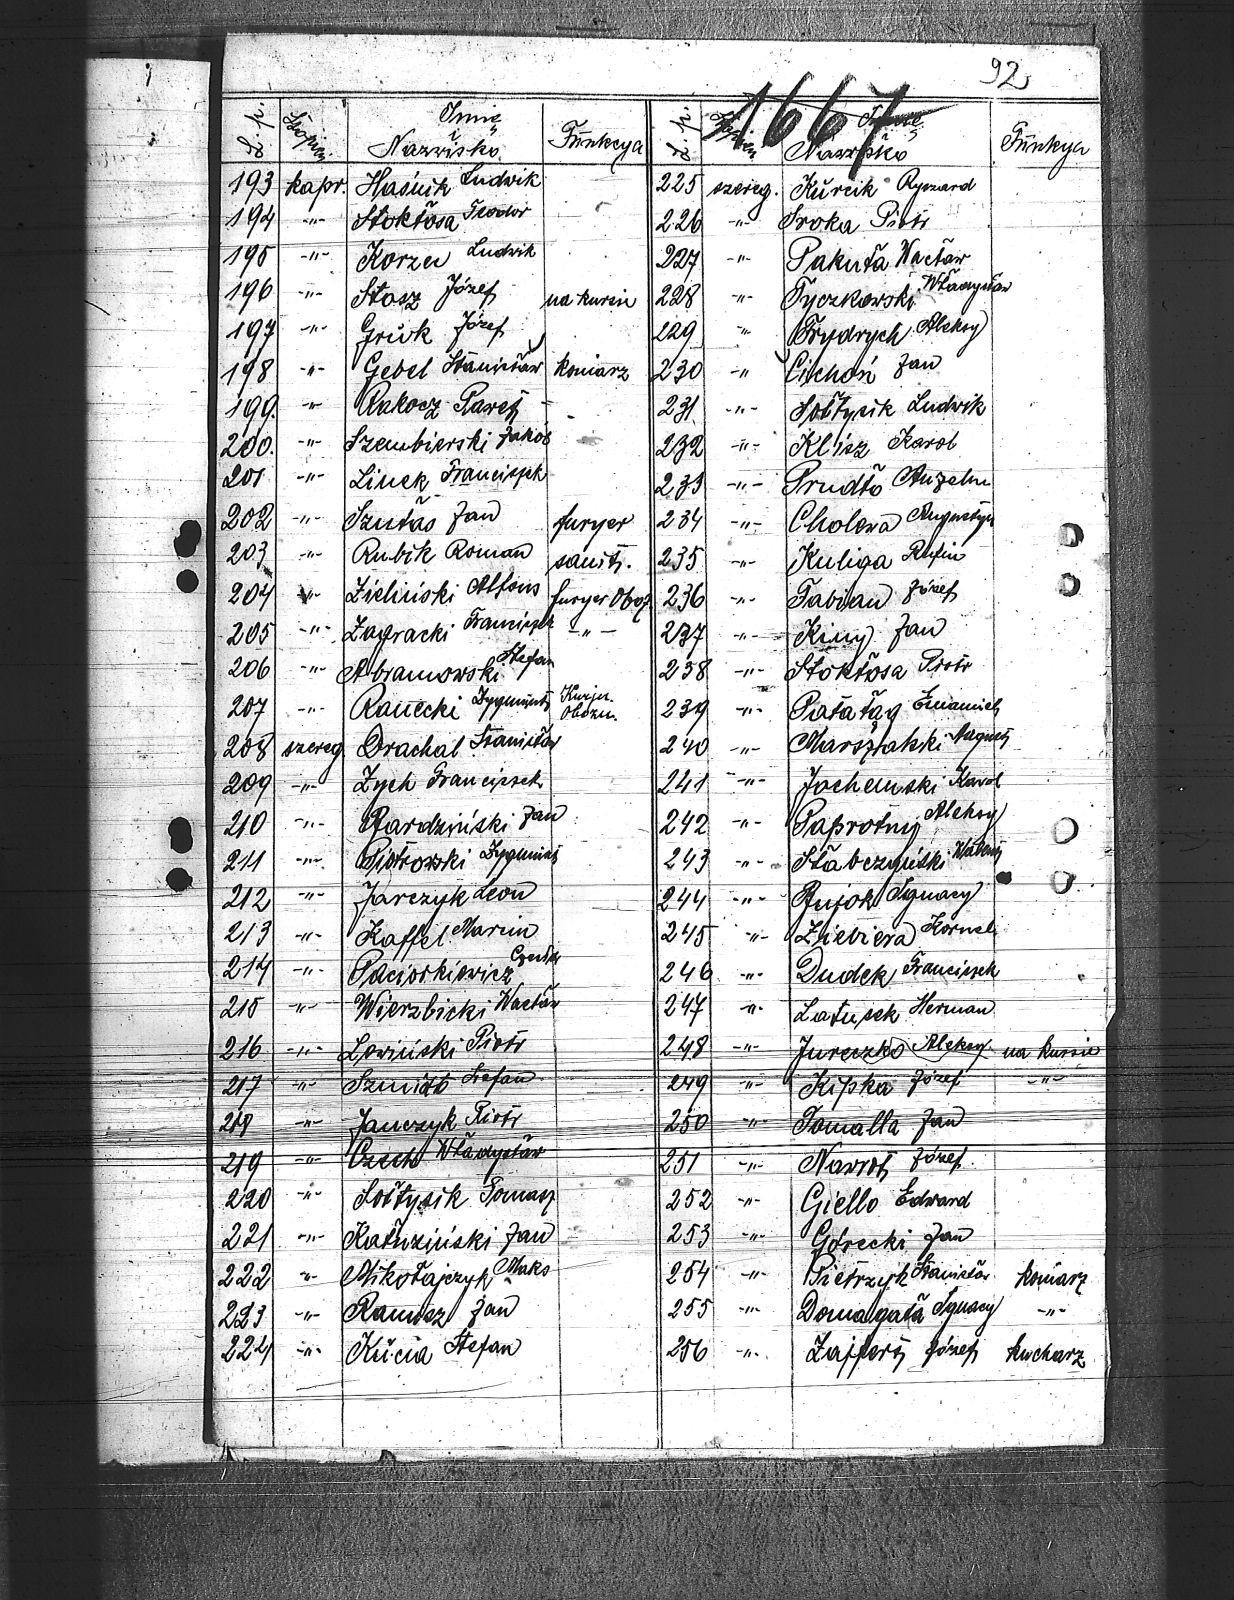 92
1667
L. p. Stopień Imię i Nazwisko Funkcya
193 kapr. Haśnik Ludwik
194 -"- Stokłosa Teodor
195 -"- Korzec Ludwik
196 -"- Stasz Józef na kursie
197 -"- Gruk Józef
198 -"- Gebel Stanisław koniarz
199. -"- Rakocz Paweł
200. -"- Szembierski Jakób
201 -"- Linek Franciszek
202 -"- Szutas Jan furyer
203 -"- Rubik Roman sanit.
204 -"- Zieliński Alfons furyer Oboz
205 -"- Zagracki Franciszek -"-
206 -"- Abramowski Stefan
207 -"- Ranecki Zygmunt Obozn.
208 szereg. Drachal Stanisław
209 -"- Zych Franciszek
210 -"- Bardziński Jan
211 -"- Piotrowski Zygmunt
212 -"- Jarczyk Leon
213 -"- Kaffel Marcin
214 -"- Paciorkiewicz
215 -"- Wierzbicki Wacław
216 -"- Lewiński Piotr
217 -"- Szmidt Stefan
218 -"- Janczyk Piotr
219 -"- Czech Władysław
220 -"- Sołtysik Tomasz
221 -"- Kałuziński Jan
222 -"- Mikołajczyk Maks
223 -"- Ramisz Jan
224 -"- Kucia Stefan
L. p. Stopień Imię i Nazwisko Funkya
225 szereg. Kurcik Ryszard
226 -"- Sroka Piotr
227 -"- Pakuła Wacław
228 -"- Tyczkowski Władysław
229 -"- Frydrych Aleksy
230 -"- Cichoń Jan
231. -"- Sołtysik Ludwik
232 -"- Klisz Karol
233 -"- Prudło Anzelm
234 -"- Cholewa Augustyn
235 -"- Kuliga Rufin
236 -"- Fabian Józef
237 -"- Kiny Jan
238 -"- Stokłosa Piotr
239 -"- Pałatąg
240 -"- Marszalski August
241 -"- Jochemski Karol
242 -"- Paprotny Aleksy
243 -"- Słabczyński
244 -"- Bujok Ignacy
245 -"- Ziebiera Kornel
246 -"- Dudek Franciszek
247 -"- Latusek Herman
248 -"- Jureczko Aleksy na kursie
249 -"- Kipka Józef -"-
250 -"- Tomalla Jan
251 -"- Nawrot Józef
252 -"- Giello Edward
253 -"- Górecki Jan
254 -"- Pietrzyk Stanisław koniarz
255 -"- Domagała Ignacy -"-
256 -"- Zajfert Józef kucharz